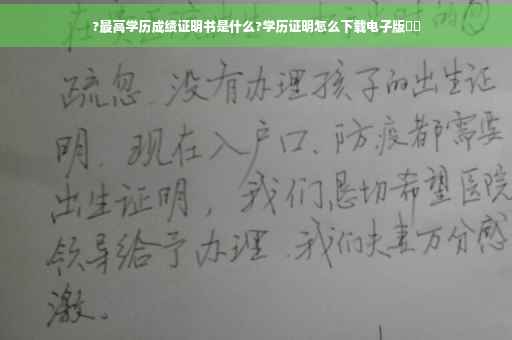 ?最高学历成绩证明书是什么?学历证明怎么下载电子版
疏忽、没有办理孩子的出生证
明、现在入户口、防疫都需要
出生证明，我们恳切希望医院
领导给予办理、我们夫妻万分感
激。